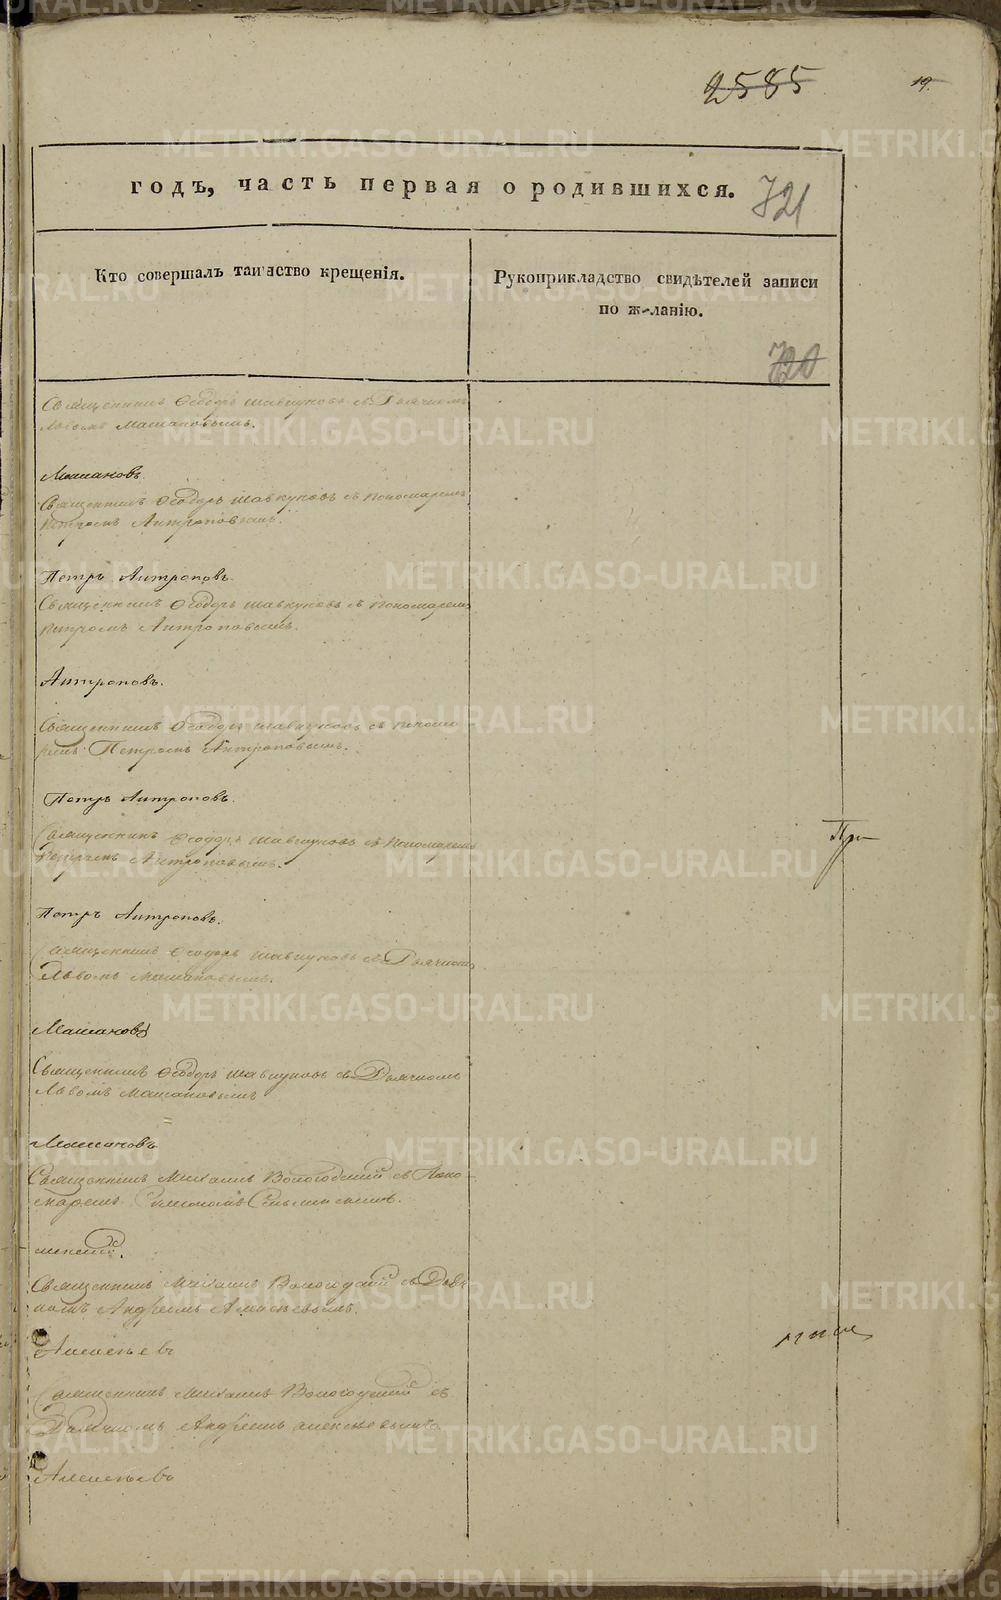 2585
19.
годъ, часть первая о родившихся.
721
Кто совершалъ таинство крещенія.
Рукоприкладство свидѣтелей записи
по желанію.
720
Священникъ Ѳеодоръ Шавкуновъ съ Дьячкомъ
Львомъ Машановымъ.
Машановъ
Священникъ Ѳеодоръ Шавкуновъ съ Пономаремъ
Петромъ Антроповымъ.
Петръ Антроповъ.
Священникъ Ѳеодоръ Шавкуновъ съ Пономаремъ
Петромъ Антроповымъ.
Антроповъ.
Священникъ Ѳеодоръ Шавкуновъ съ Понома
ремъ Петромъ Антроповымъ.
Петръ Антроповъ.
При
Священникъ Ѳеодоръ Шавкуновъ съ Пономаремъ
Петромъ Антроповымъ.
Петръ Антроповъ.
Священникъ Ѳеодоръ Шавкуновъ съ Дьячкомъ
Львомъ Машановымъ.
Машановъ
Священникъ Ѳеодоръ Шавкуновъ съ Дьячкомъ
Львомъ Машановымъ
Машановъ
Священникъ Михаилъ Вологодский съ Поно
маремъ Симономъ
Священникъ Михаилъ Вологодский съ Дьяч
комъ Андреемъ Алексѣевымъ.
Алексѣевъ
Священникъ Михаилъ Вологодский съ
Дьячкомъ Андреемъ Алексѣевымъ
Алексѣевъ
METRIKI.GASO-URAL.RU